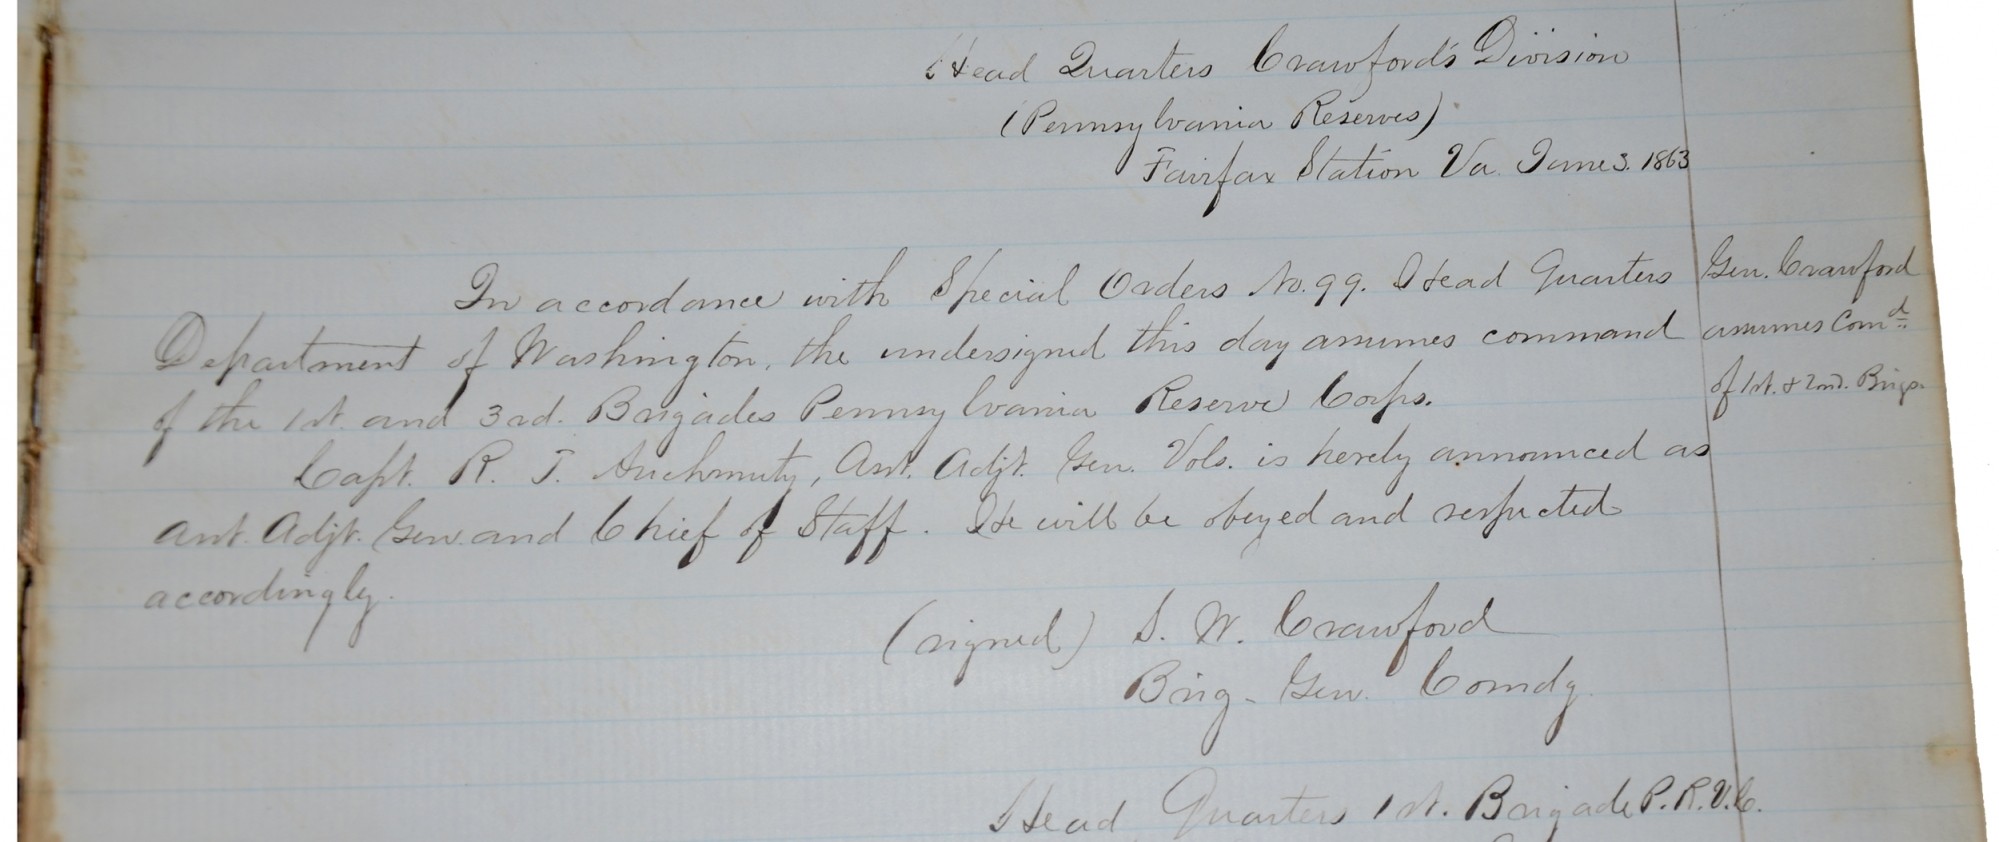 Head Quarters Crawford's Division
(Pennsylvania Reserves)
Fairfax Station Va. June 3. 1863
In accordance with Special Orders No. 99. Head Quarters
Department of Washington, the undersigned this day assumes command
of the 1st. and 3rd. Brigades Pennsylvania Reserve Corps.
Gen. Crawford
assumes Comd
of 1st. & 2nd. Brigs.
Capt. R. T. Auchmuty, Asst. Adjt. Gen. Vols. is hereby announced as
Asst. Adjt. Gen. and Chief of Staff. He will be obeyed and respected
accordingly.
(signed) S. W. Crawford
Brig. Gen. Comdg.
Head Quarters 1st. Brigade P. R. V. C.